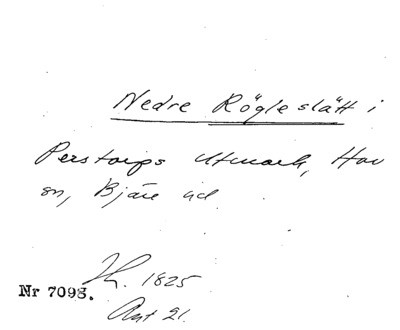 Nedre Rögleslätt i
Perstorps Utmark, Hov
sn, Bjäre hd
Th. 1825
Nr 7098.
Akt 21.